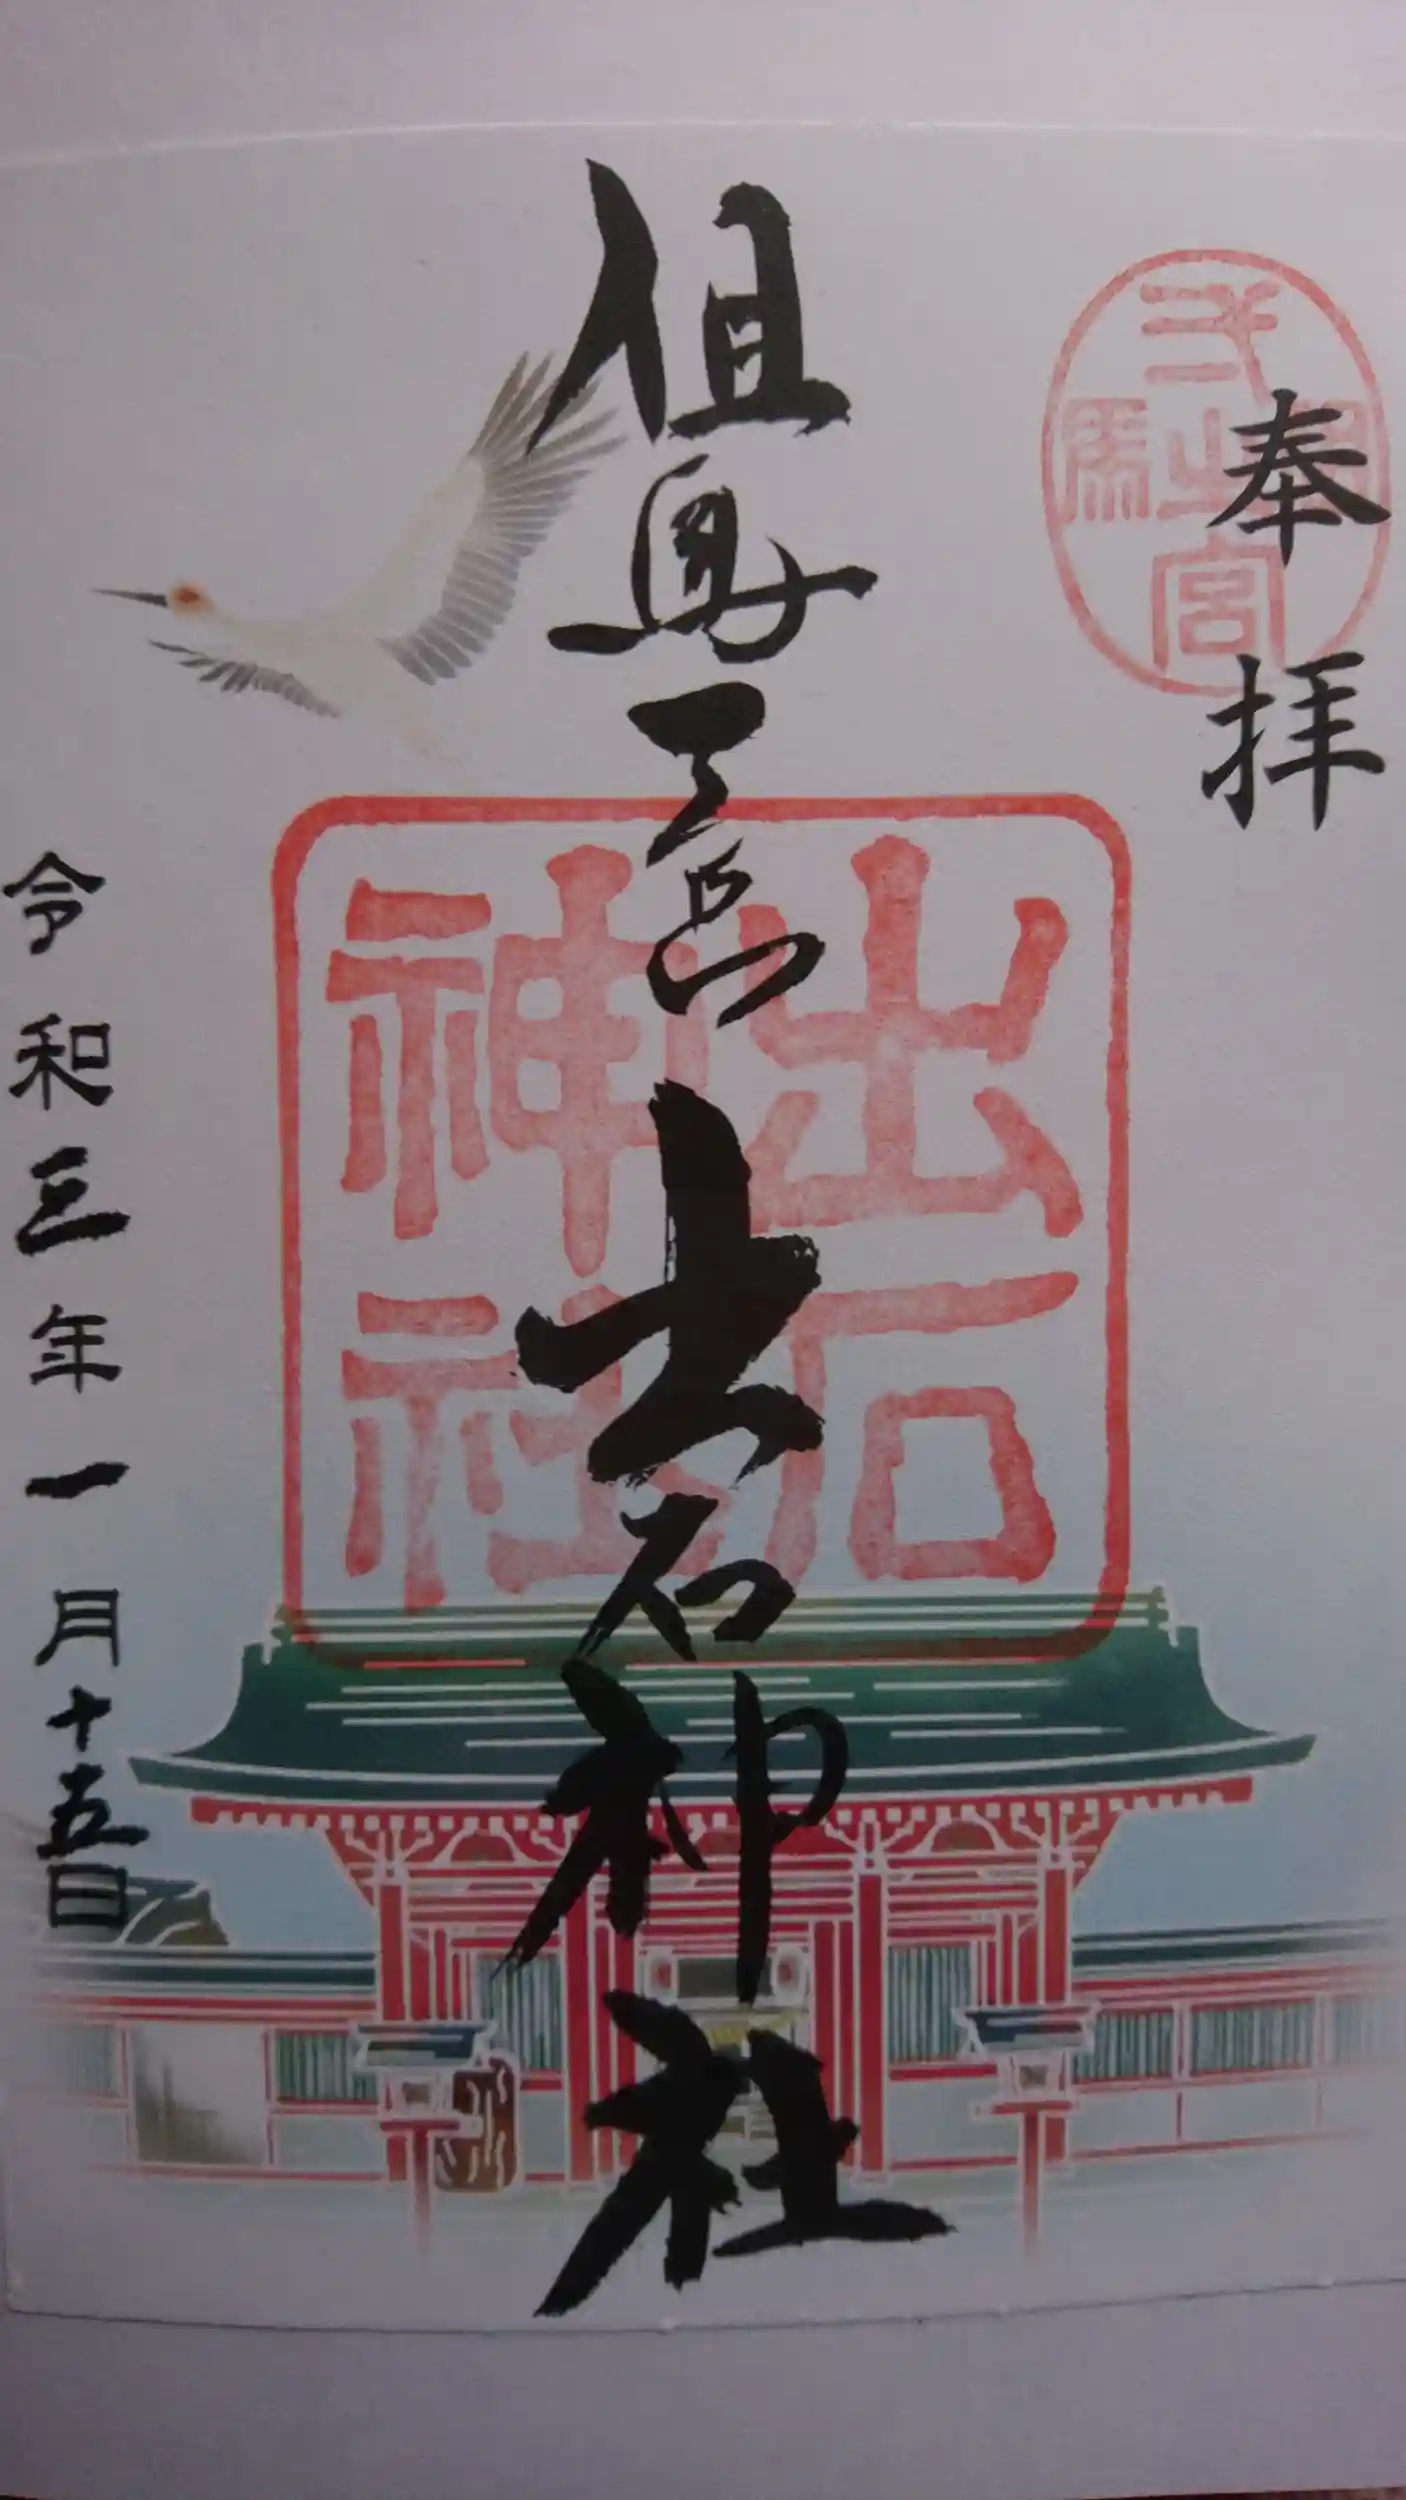 奉拝
弌之宮
但馬
但馬一宮 出石神社
出石
神社
令和三年一月十五日